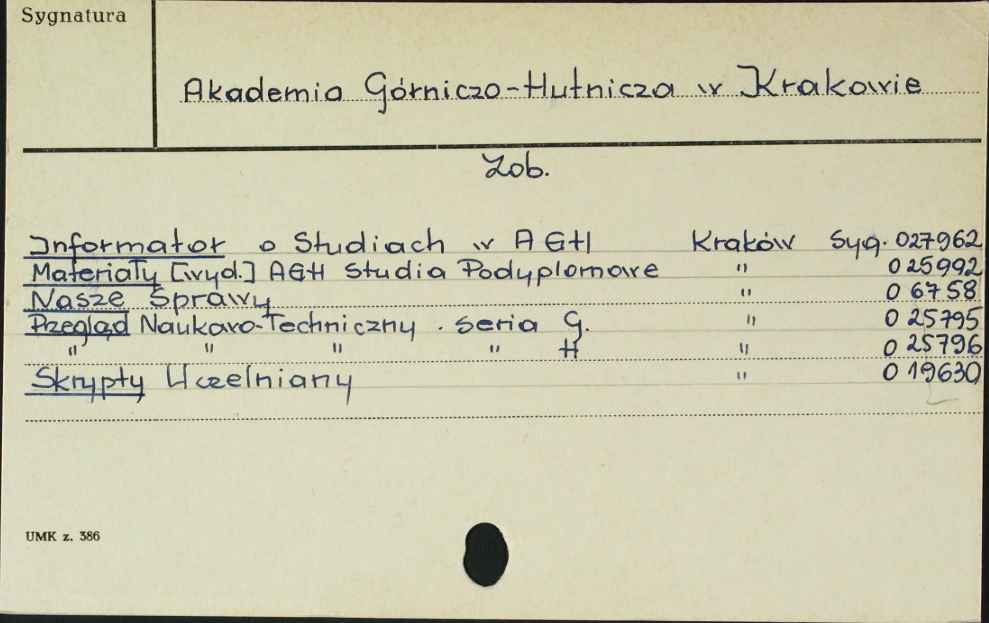 Sygnatura
Akademia Górniczo-Hutnicza w Krakowie
Zob.
Informator o Studiach w AGH Kraków Syg. 027962
Materiały [wyd.] AGH Studia Podyplomowe " 025992
Nasze Sprawy " 06758
Przegląd Naukowo-Techniczny. Seria G. " 025795
" " " " H " 025796
Skrypty Uczelniany " 019630
UMK z. 386